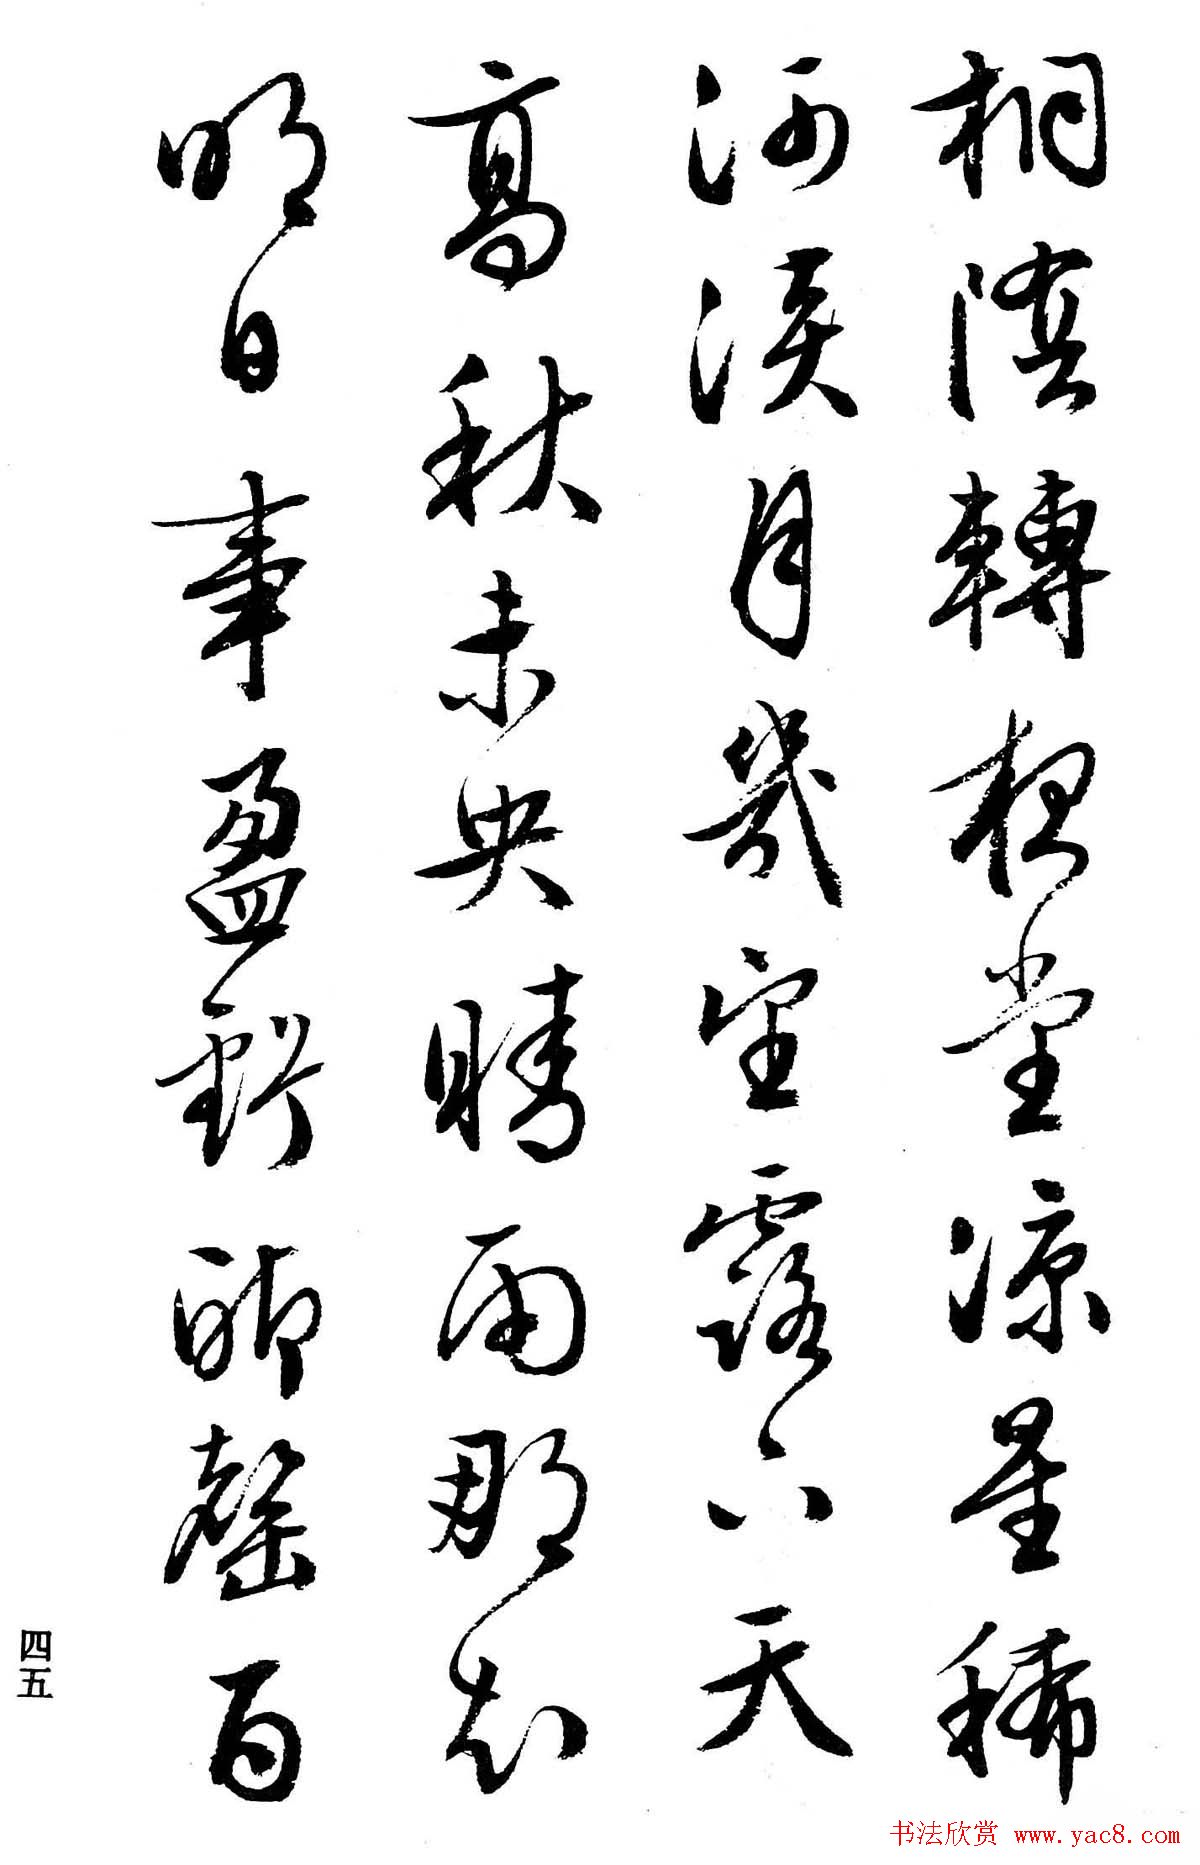 桐陰轉夜堂涼星稀
河淡月幾望露下天
高秋未央晴雨那知
明日事盈虧聊罄百
四五
书法欣赏 www.yac8.com